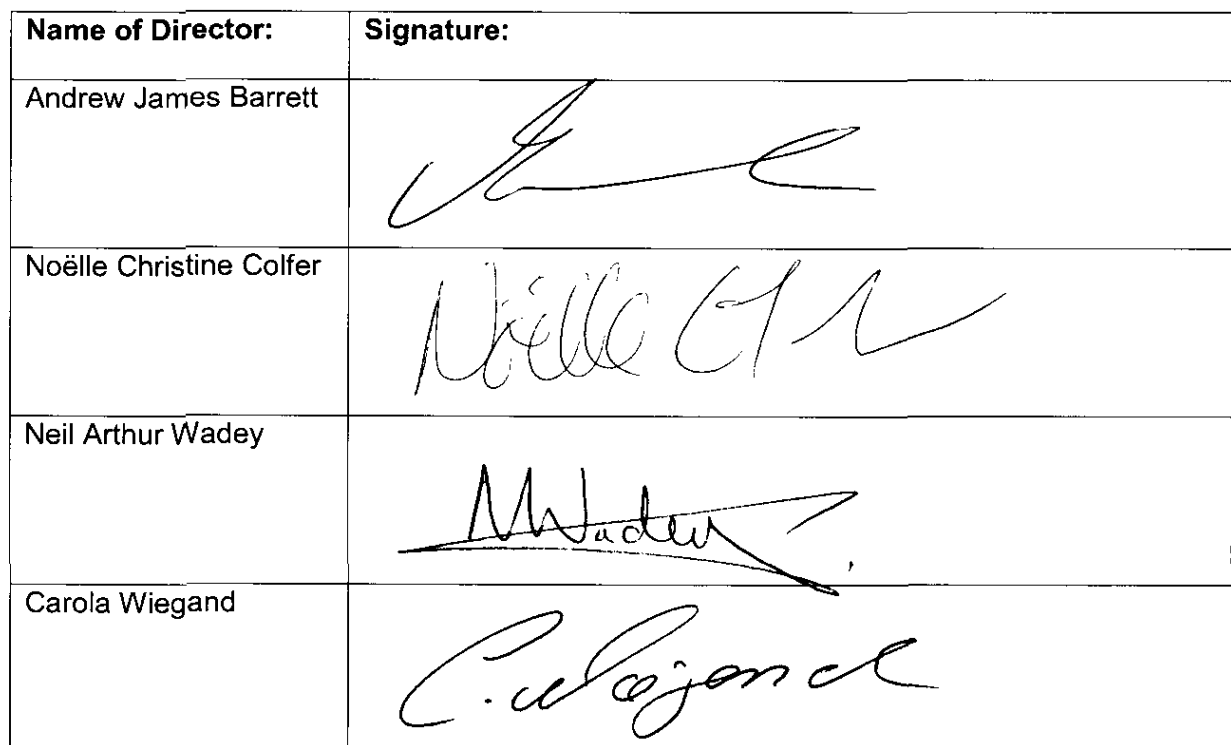 Name of Director: Signature:
Andrew James Barrett
Noëlle Christine Colfer
Noëlle
Neil Arthur Wadey
NWadey
Carola Wiegand
C. Wiegand